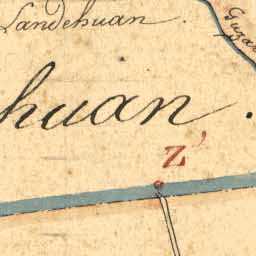 Landehuan
Guzar
huan.
Z'